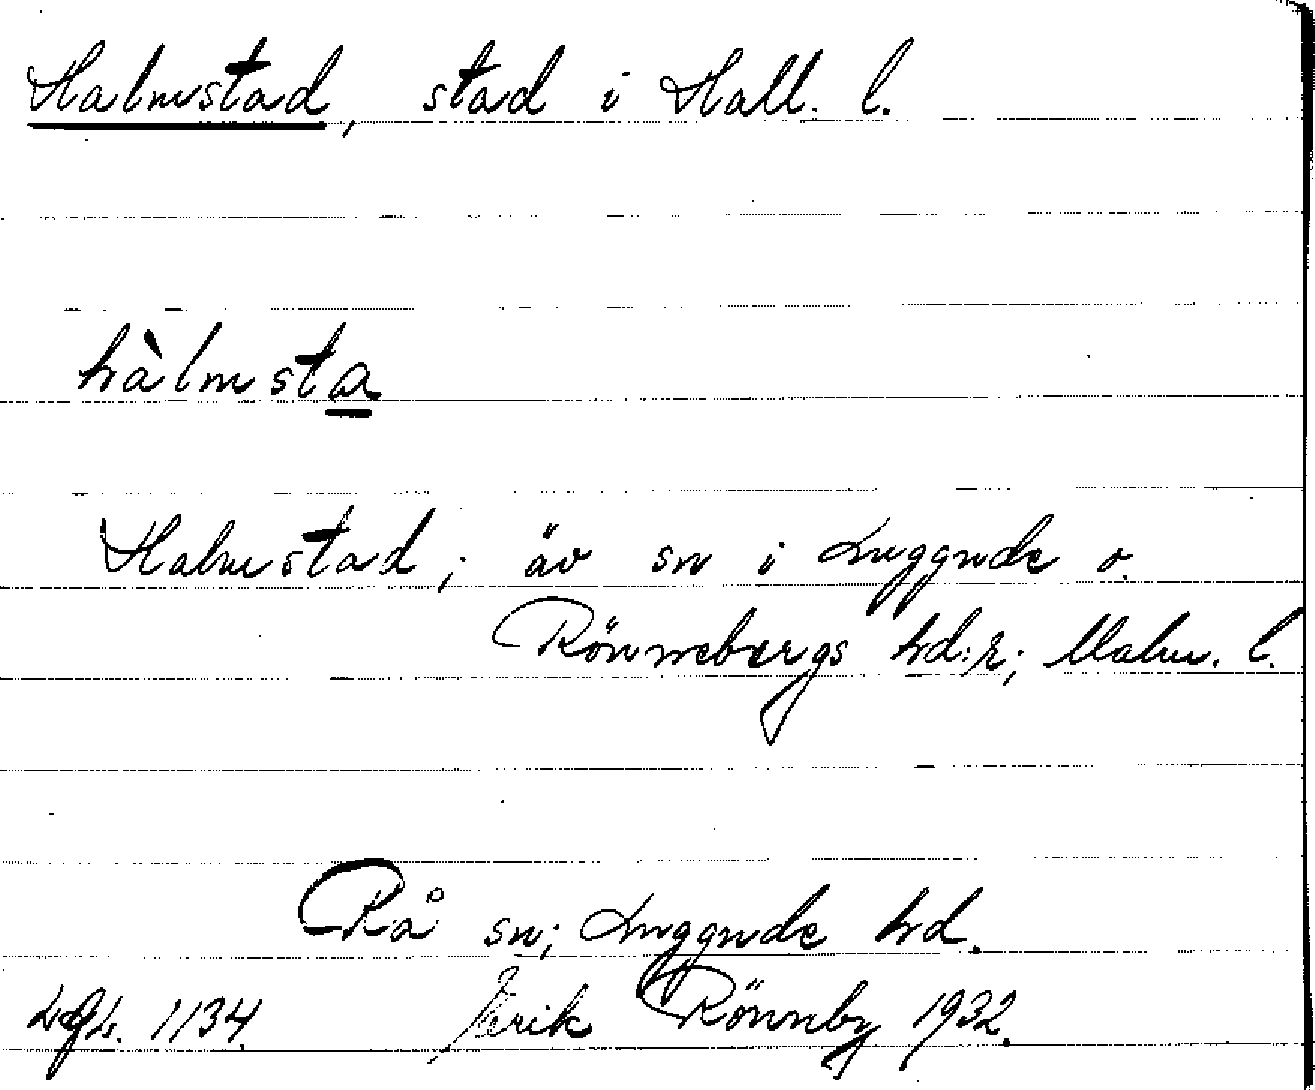 Halmstad, stad i Hall. l.
hàlmsta
Halmstad; äv sn i Luggude o.
Rönnebergs hd:r; Malm. l.
Rå sn; Luggude hd.
1134. Erik Rönnby 1932.